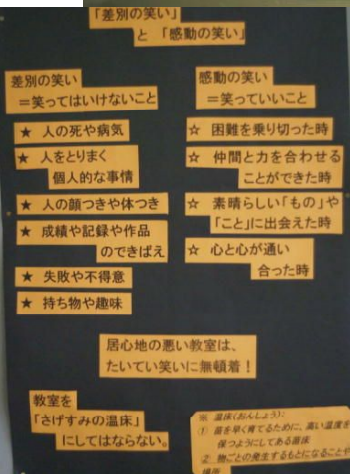 「差別の笑い」
と 「感動の笑い」
差別の笑い
＝笑ってはいけないこと
★ 人の死や病気
★ 人をとりまく
個人的な事情
★ 人の顔つきや体つき
★ 成績や記録や作品
のできばえ
★ 失敗や不得意
★ 持ち物や趣味
感動の笑い
＝笑っていいこと
☆ 困難を乗り切った時
☆ 仲間と力を合わせる
ことができた時
☆ 素晴らしい「もの」や
「こと」に出会えた時
☆ 心と心が通い
合った時
居心地の悪い教室は、
たいてい笑いに無頓着！
教室を
「さげすみの温床」
にしてはならない。
※ 温床(おんしょう)：
① 苗を早く育てるために、高い温度を
保つようにしてある苗床
② 物ごとの発生するもとになることや
場所